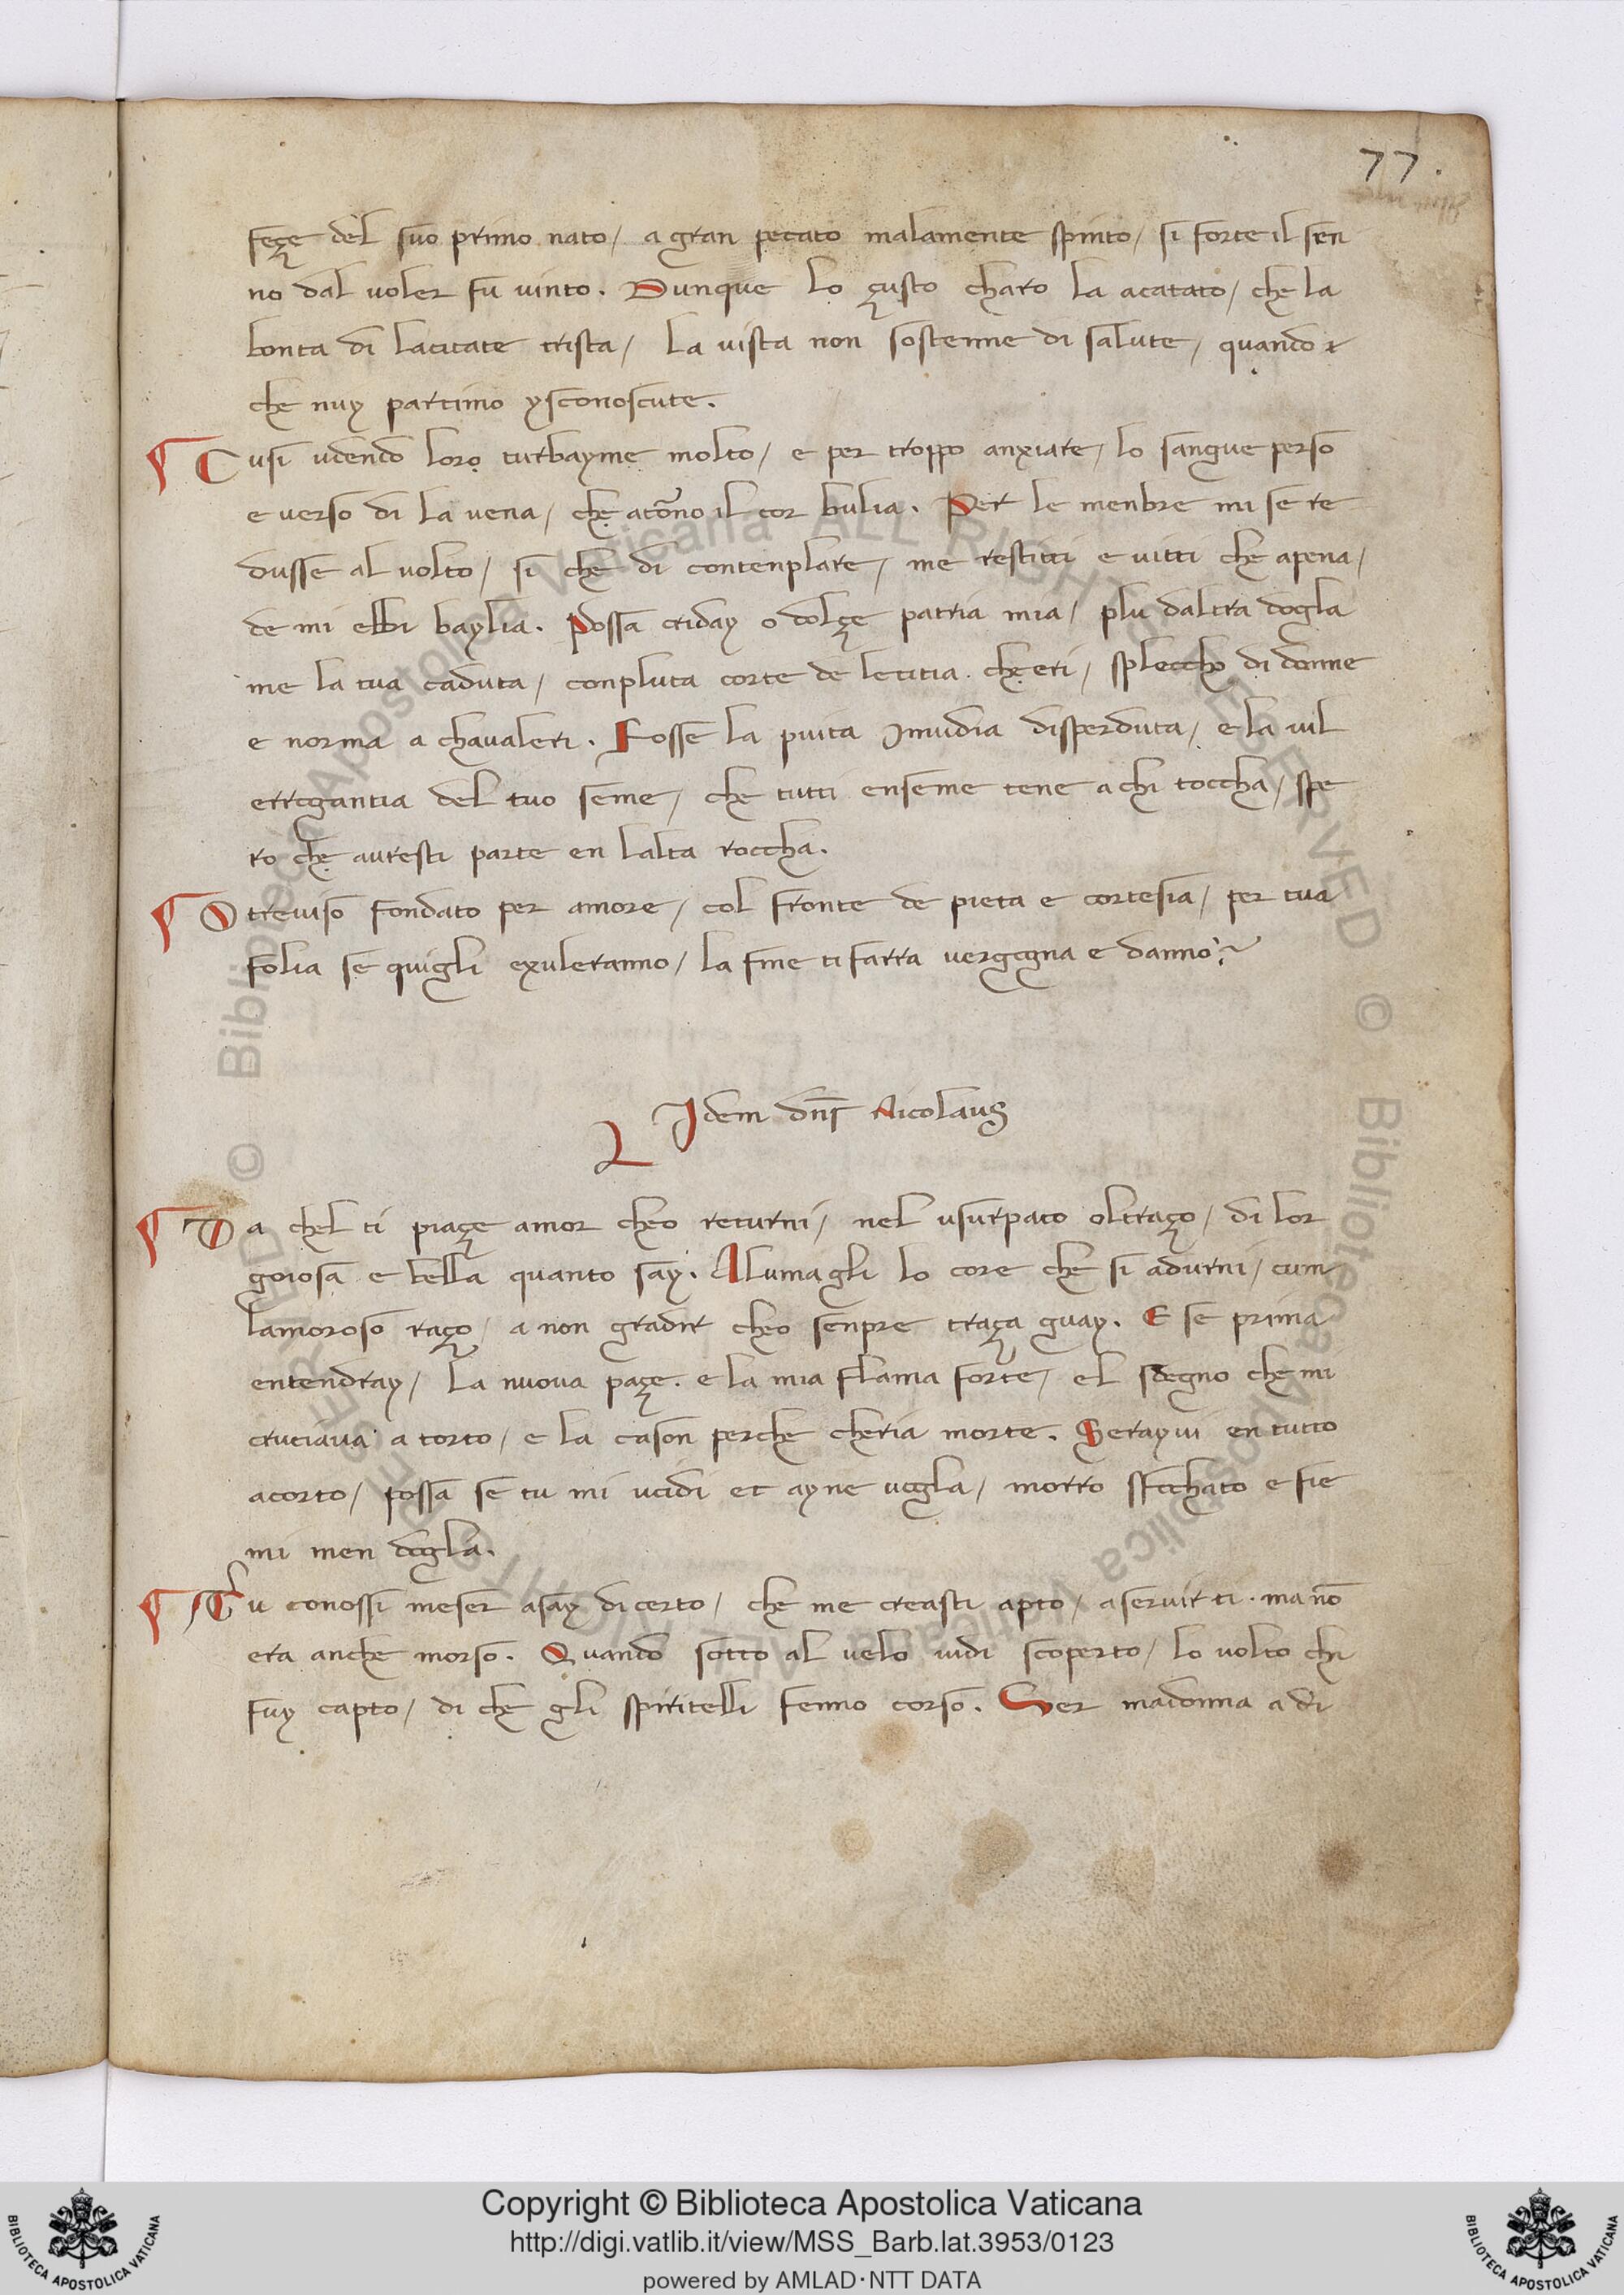 77.
feçe del suo primo nato/ a gran pecato malamente spinto/ si forte il sen
no dal voler fu vinto. Dunque lo çusto charo la acatato/ che la
bonta di lacitate trista/ la vista non sostenne di salute/ quando
che nuy partimo ysconoscute.
Cusi udendo loro turbayme molto/ e per troppo anxiare/ lo sangue perso
e verso di la vena/ che atorno il cor bulia. Per le menbre mi se re
dusse al volto/ si che di contenplare/ me restitti e vitti che apena/
de mi ebbi baylia. Possa criday o dolçe patria mia/ plu daltra dogla
me la tua caduta/ conpluta corte de letitia. che eri/ splecchio di donne
e norma a chavaleri. Fosse la puita Inuidia disperduta/ e la uil
errogantia del tuo seme/ che tutti enseme tene a chi toccha/ spe
ro che auresti parte en lalta roccha.
O treviso fondato per amore/ col fronte de pieta e cortesia/ per tua
folia se quigli exuleranno/ la fine ti farra vergogna e danno
Idem dns Nicolaus
Da chel ti piaçe amor cheo returni/ nel usurpato oltraço/ di lor
goiosa e bella quanto say. Aluma gli lo core che si adurni/ cum
lamoroso raço/ a non gradir cheo senpre traça guay. E se prima
entendray/ la nuova paçe. e la mia flama forte/ el sdegno che mi
cruciava a torto/ e la cason perche cheria morte. Serayui en tutto
acorto/ possa se tu mi ucidi et ayne uogla/ morro sfochato e fie
mi men dogla.
Tu conossi meser asay di certo/ che me creasti apto/ a servir ti. ma nō
era anche morso. Quando sotto al velo vidi scoperto/ lo volto chi
fuy capto/ di che gli spiritelli fenno corso. Ser madonna a di
Copyright © Biblioteca Apostolica Vaticana
http://digi.vatlib.it/view/MSS_Barb.lat.3953/0123
powered by AMLAD·NTT DATA